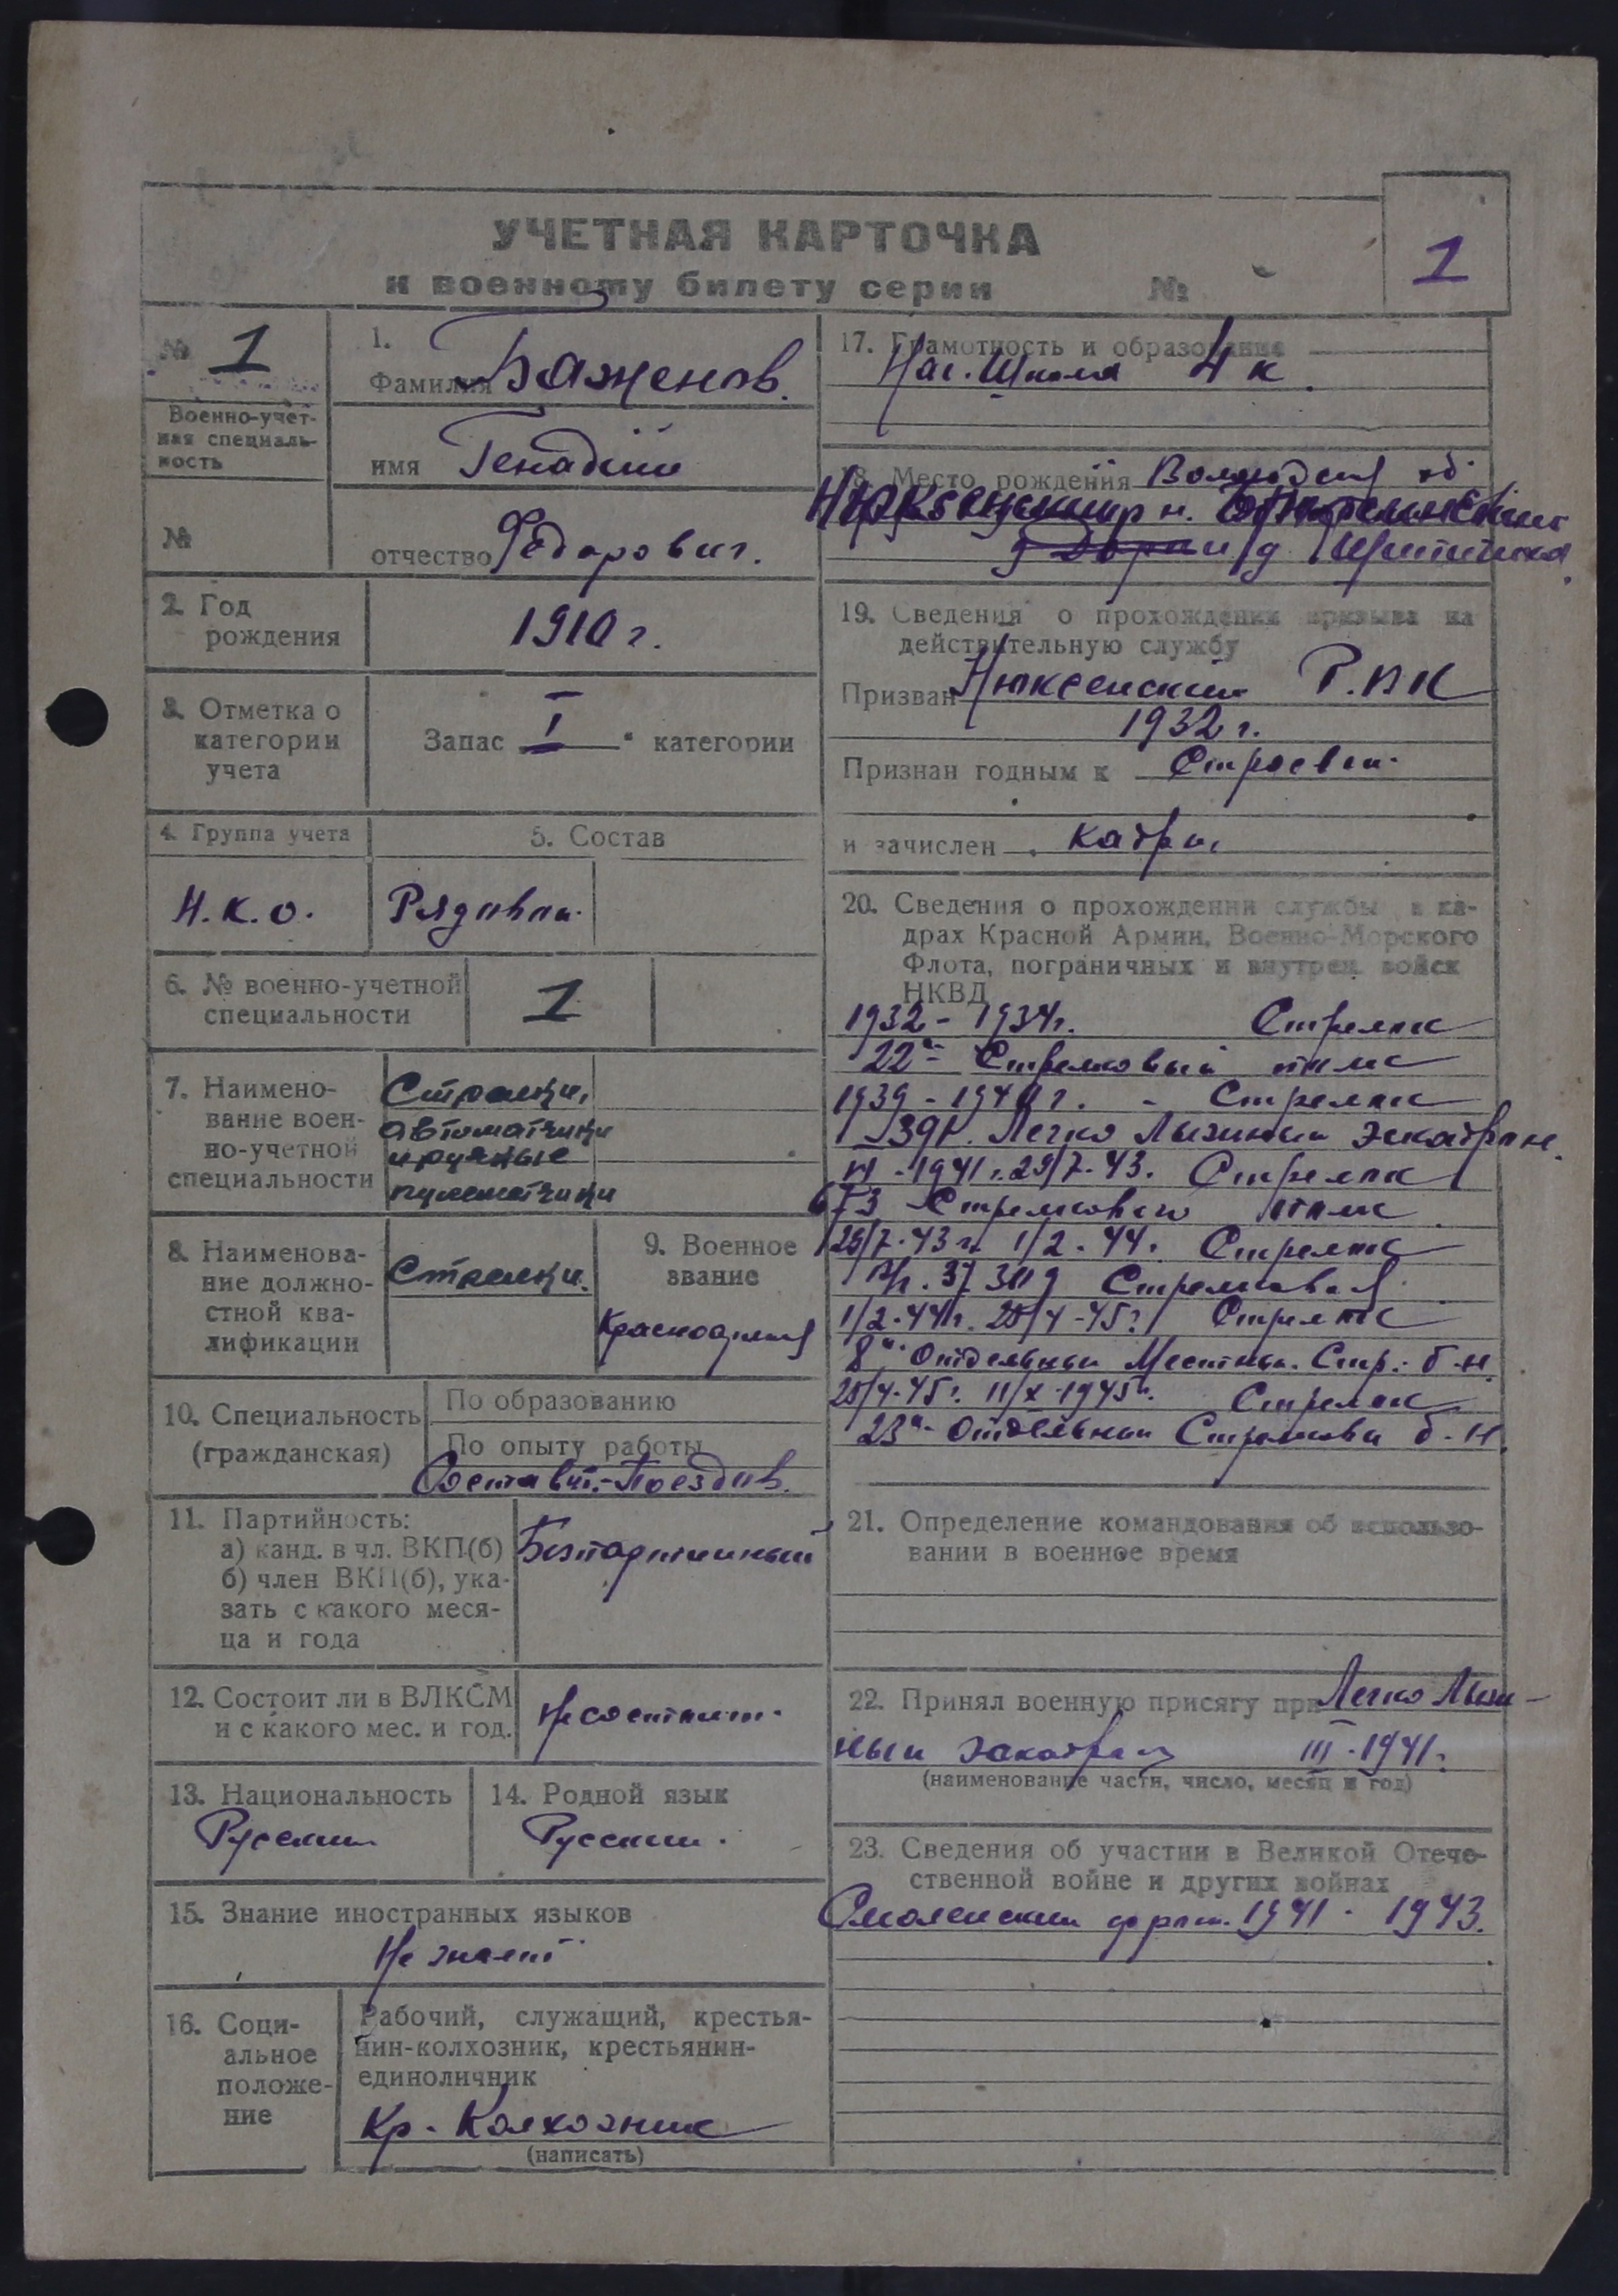 УЧЕТНАЯ КАРТОЧКА
к военному билету серии №
1
№ 1
Военно-учет-
ная специаль-
ность
№
1.
Фамилия Баженов.
имя Генадий
отчество Федорович.
2. Год
рождения
1910 г.
3. Отметка о
категории
учета
Запас I категории
4. Группа учета
5. Состав
Н.К.О.
Рядовой.
6. № военно-учетной
специальности
1
7. Наимено-
вание воен-
но-учетной
специальности
Стрелки,
автоматчики
и ручные
пулеметчики
8. Наименова-
ние должно-
стной ква-
лификации
Стрелки.
9. Военное
звание
Красноармеец
10. Специальность
(гражданская)
По образованию
По опыту работы
Составит. Поездов.
11. Партийность:
а) канд. в чл. ВКП(б)
б) член ВКП(б), ука-
зать с какого меся-
ца и года
Безпартийный
12. Состоит ли в ВЛКСМ
и с какого мес. и год.
Не состоит.
13. Национальность
Русский
14. Родной язык
Русский.
15. Знание иностранных языков
Не знает
16. Соци-
альное
положе-
ние
Рабочий, служащий, крестья-
нин-колхозник, крестьянин-
единоличник
Кр-Колхозник
(написать)
17. Грамотность и образование
Нач. Школа 4 к.
18. Место рождения Вологодская об.
Нюксенский р н.
д
19. Сведения о прохождении призыва на
действительную службу
Призван Нюксенский Р.В.К
1932 г.
Признан годным к Строевой.
и зачислен кадры
20. Сведения о прохождении службы в ка-
драх Красной Армии, Военно-Морского
Флота, пограничных и внутрен. войск
НКВД
1932 - 1934 г. Стрелок
22й Стрелковый полк
1939 - 1940 г. - Стрелок
Легко Лыжный Эскадрон.
1941 г. 29/7-43. Стрелок
673 Стрелкового полк
29/7-43 г. 1/2-44. Стрелок
Стрелковая
1/2-44 г. 25/4-45 г. Стрелок
8й Отдельный Местный. Стр. б-н.
25/4-45 г. 11/X-1945 г. Стрелок
23й Отдельный Стрелковый б-н.
21. Определение командования об использо-
вании в военное время
22. Принял военную присягу при Легко Лыж-
ный эскадрон III-1941.
(наименование части, число, месяц и год)
23. Сведения об участии в Великой Отече-
ственной войне и других войнах
Смоленский фронт. 1941 - 1943.